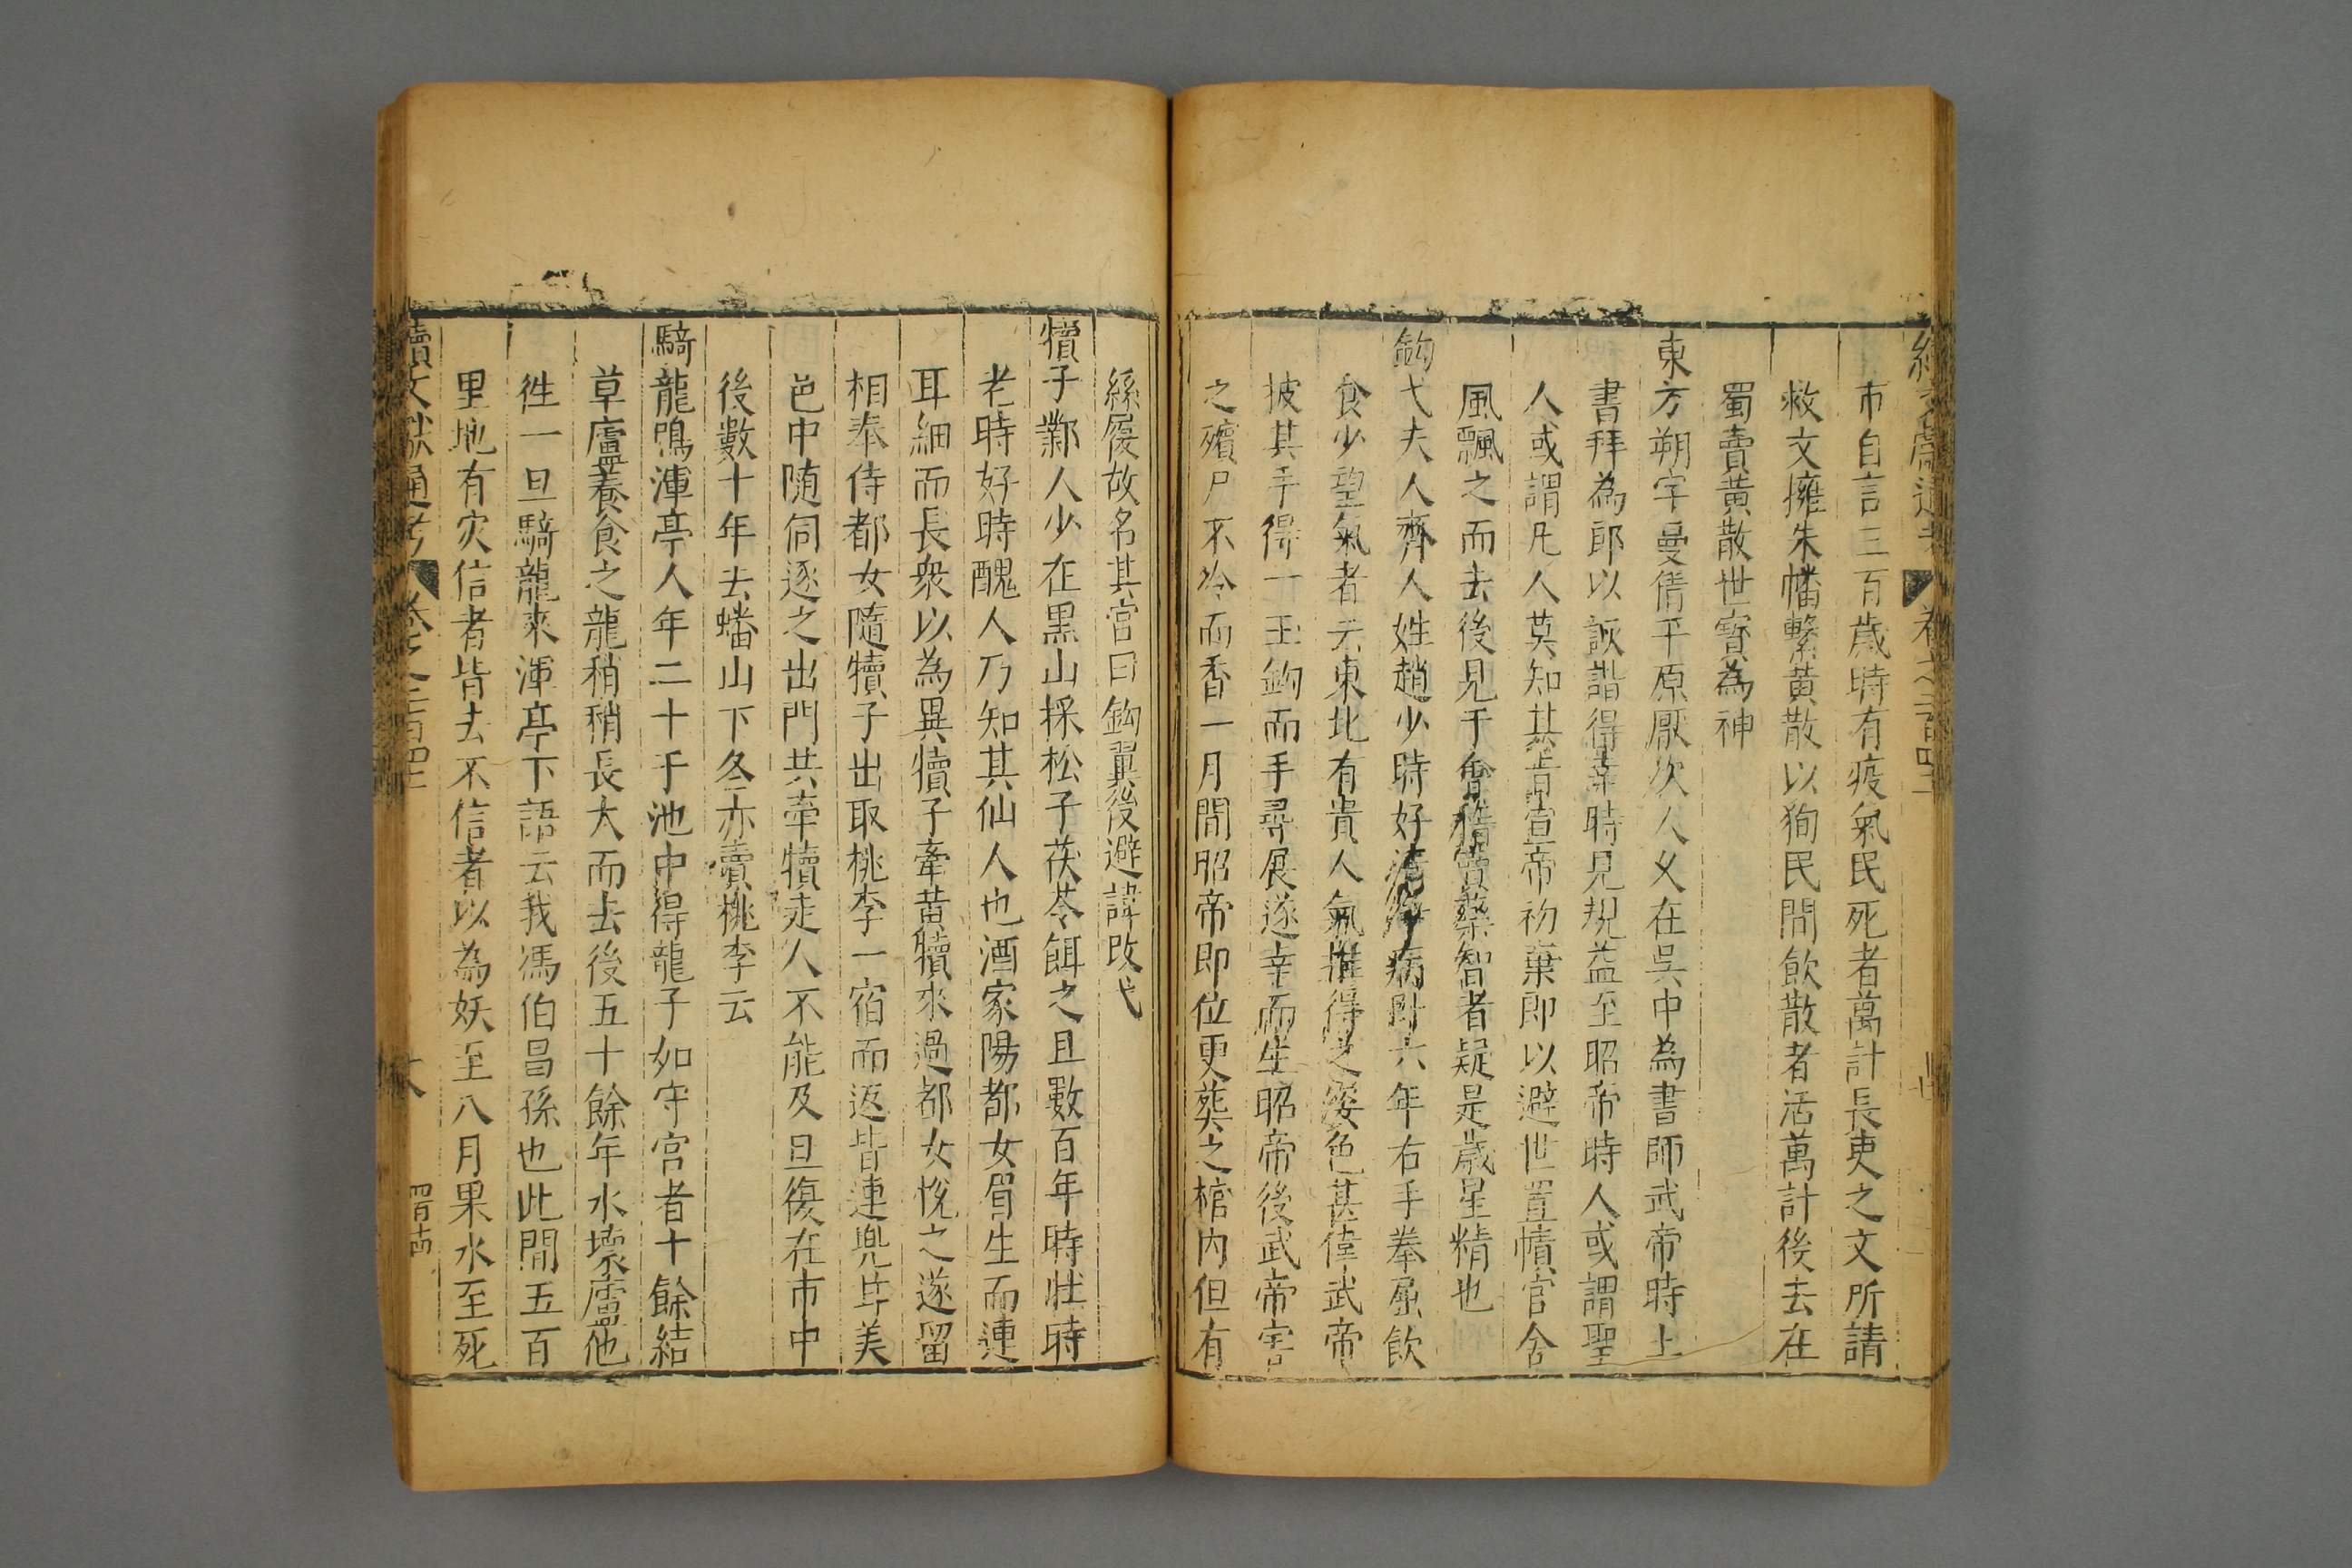 市自言三百歲時有疫氣民死者萬計長吏之文所請
救文擁朱幡繫黃散以狥民間飲散者活萬計後去在
蜀賣黃散世寳為神
東方朔字曼倩平原厭次人乆在吳中為書師武帝時上
書拜為郎以詼諧得幸時見規益至昭帝時人或謂聖
人或謂凢人莫知其旨宣帝初棄郎以避世置幘官舍
風飄之而去後見于會稽賣藥智者疑是歲星精也
鈎弋夫人齊人姓趙少時好清凈病卧六年右手拳屈飲
食少望氣者云東北有貴人氣推得之姿色甚偉武帝
披其手得一玉鈎而手尋展遂幸而生昭帝後武帝害
之殯尸不冷而香一月間昭帝即位更葬之棺內但有
絲履故名其宮曰鈎翼後避諱改弋
犢子鄴人少在黑山採松子茯苓餌之且數百年時壯時
老時好時醜人乃知其仙人也酒家陽都女眉生而連
耳細而長衆以為異犢子牽黃犢來過都女悅之遂留
相奉侍都女隨犢子出取桃李一宿而返皆連兜甘美
邑中随伺逐之出門共牽犢走人不能及旦復在市中
後數十年去蟠山下冬亦賣桃李云
騎龍鳴渾亭人年二十于池中得龍子如守宮者十餘結
草廬養食之龍稍稍長大而去後五十餘年水壞廬他
徃一旦騎龍來渾亭下語云我馮伯昌孫也此間五百
里地有灾信者皆去不信者以為妖至八月果水至死
續文獻通考 卷之二百四十